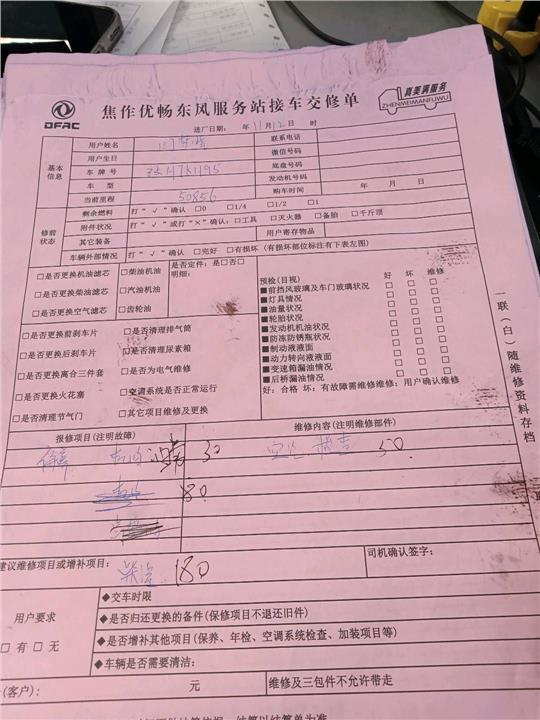 DFAC
焦作优畅东风服务站接车交修单
真美满服务
ZHENMEIMANFUWU
进厂日期: 年11月12日 时
基本信息
用户姓名
联系电话
用户生日
微信号码
车 牌 号
底盘号码
车 型
发动机号码
当前里程 50856
购车时间 年 月 日
修前状态
剩余燃料 打"√"确认 □0 □1/4 □1/2 □1
附件状况 打"√"或打"×"确认: □工具 □灭火器 □备胎 □千斤顶
其它装备 用户寄存物品
车辆外部情况 打"√"确认 □完好 □有损坏 (有损坏部位标注有下表左图)
□是否更换机油滤芯
□是否更换柴油滤芯
□是否更换空气滤芯
□柴油机油
□汽油机油
□齿轮油
是否定件: 是□否□
明细:
□是否更换前刹车片
□是否更换后刹车片
□是否更换离合三件套
□是否更换火花塞
□是否清理节气门
□是否清理排气筒
□是否清理尿素箱
□是否为电气维修
□空调系统是否正常运行
□其它项目维修及更换
预检(目视) 好 坏 维修
■前挡风玻璃及车门玻璃状况 □ □ □
■灯具情况 □ □ □
■油量状况 □ □ □
■轮胎状况 □ □ □
■发动机机油状况 □ □ □
■防冻防锈瓶状况 □ □ □
■制动液液面 □ □ □
■动力转向液液面 □ □ □
■变速箱漏油情况 □ □ □
■后桥漏油情况 □ □ □
好: 合格 坏: 有故障需维修维修: 用户确认维修
一联(白)随维修资料存档
报修项目(注明故障)
维修内容(注明维修部件)
保养 机油 30
50
180
建议维修项目或增补项目: 180
司机确认签字:
用户要求
□ 有 □ 无
◆交车时限
◆是否归还更换的备件(保修项目不退还旧件)
◆是否增补其他项目(保养、年检、空调系统检查、加装项目等)
◆车辆是否需要清洁:
(客户): 元
维修及三包件不允许带走